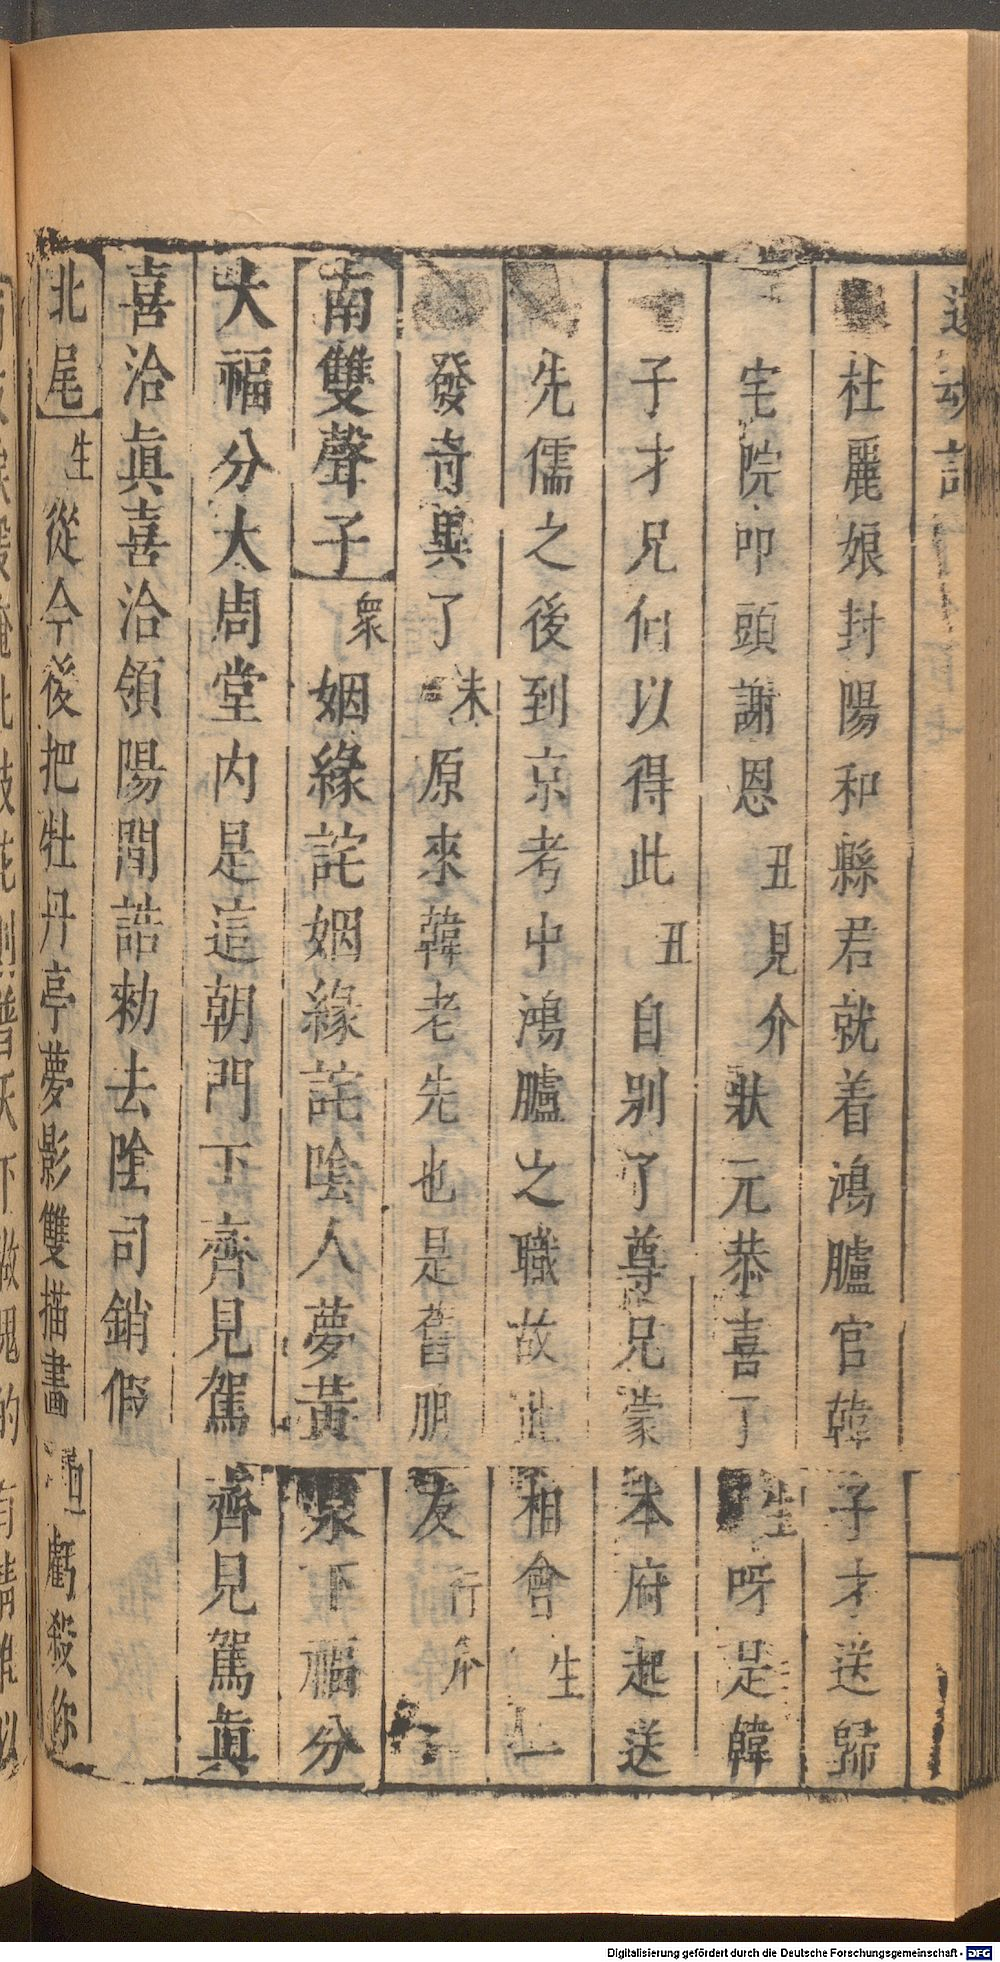 還魂記
杜麗娘封陽和縣君就着鴻臚官韓子才送歸
宅院叩頭謝恩丑見介狀元恭喜了生呀是韓
子才兄何以得此丑自别了尊兄蒙本府起送
先儒之後到京考中鴻臚之職故此相會生一
發奇異了末原來韓老先也是舊朋友行介
南雙聲子衆姻緣詫姻緣詫陰人夢黃泉下福分
大福分大周堂内是這朝門下齊見駕齊見駕眞
喜洽眞喜洽領陽間誥勑去陰司銷假
北尾生從今後把牡丹亭夢影雙描畫旦虧殺你
Digitalisierung gefördert durch die Deutsche Forschungsgemeinschaft - DFG